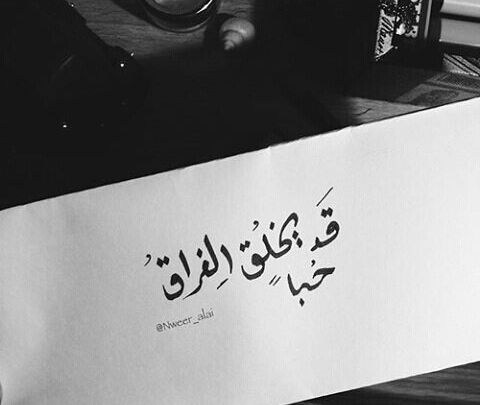 قَد يخلُق الِفراقُ
حُباً
@Nweer_alai